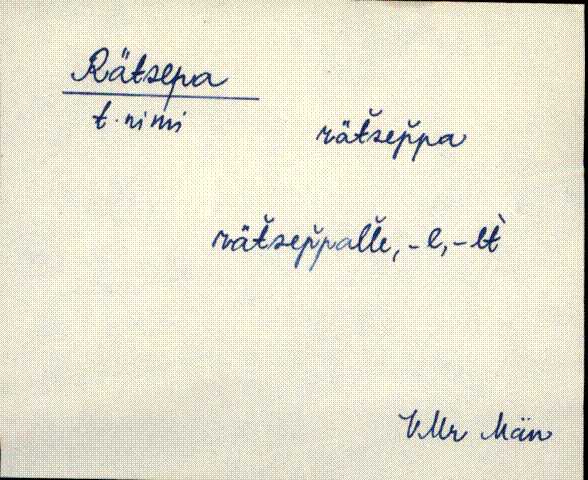 Rätsepa
t. nimi
rät̆sep̆pa
rät̆sep̆pal̆le, -l, -lt̀
VMr Män